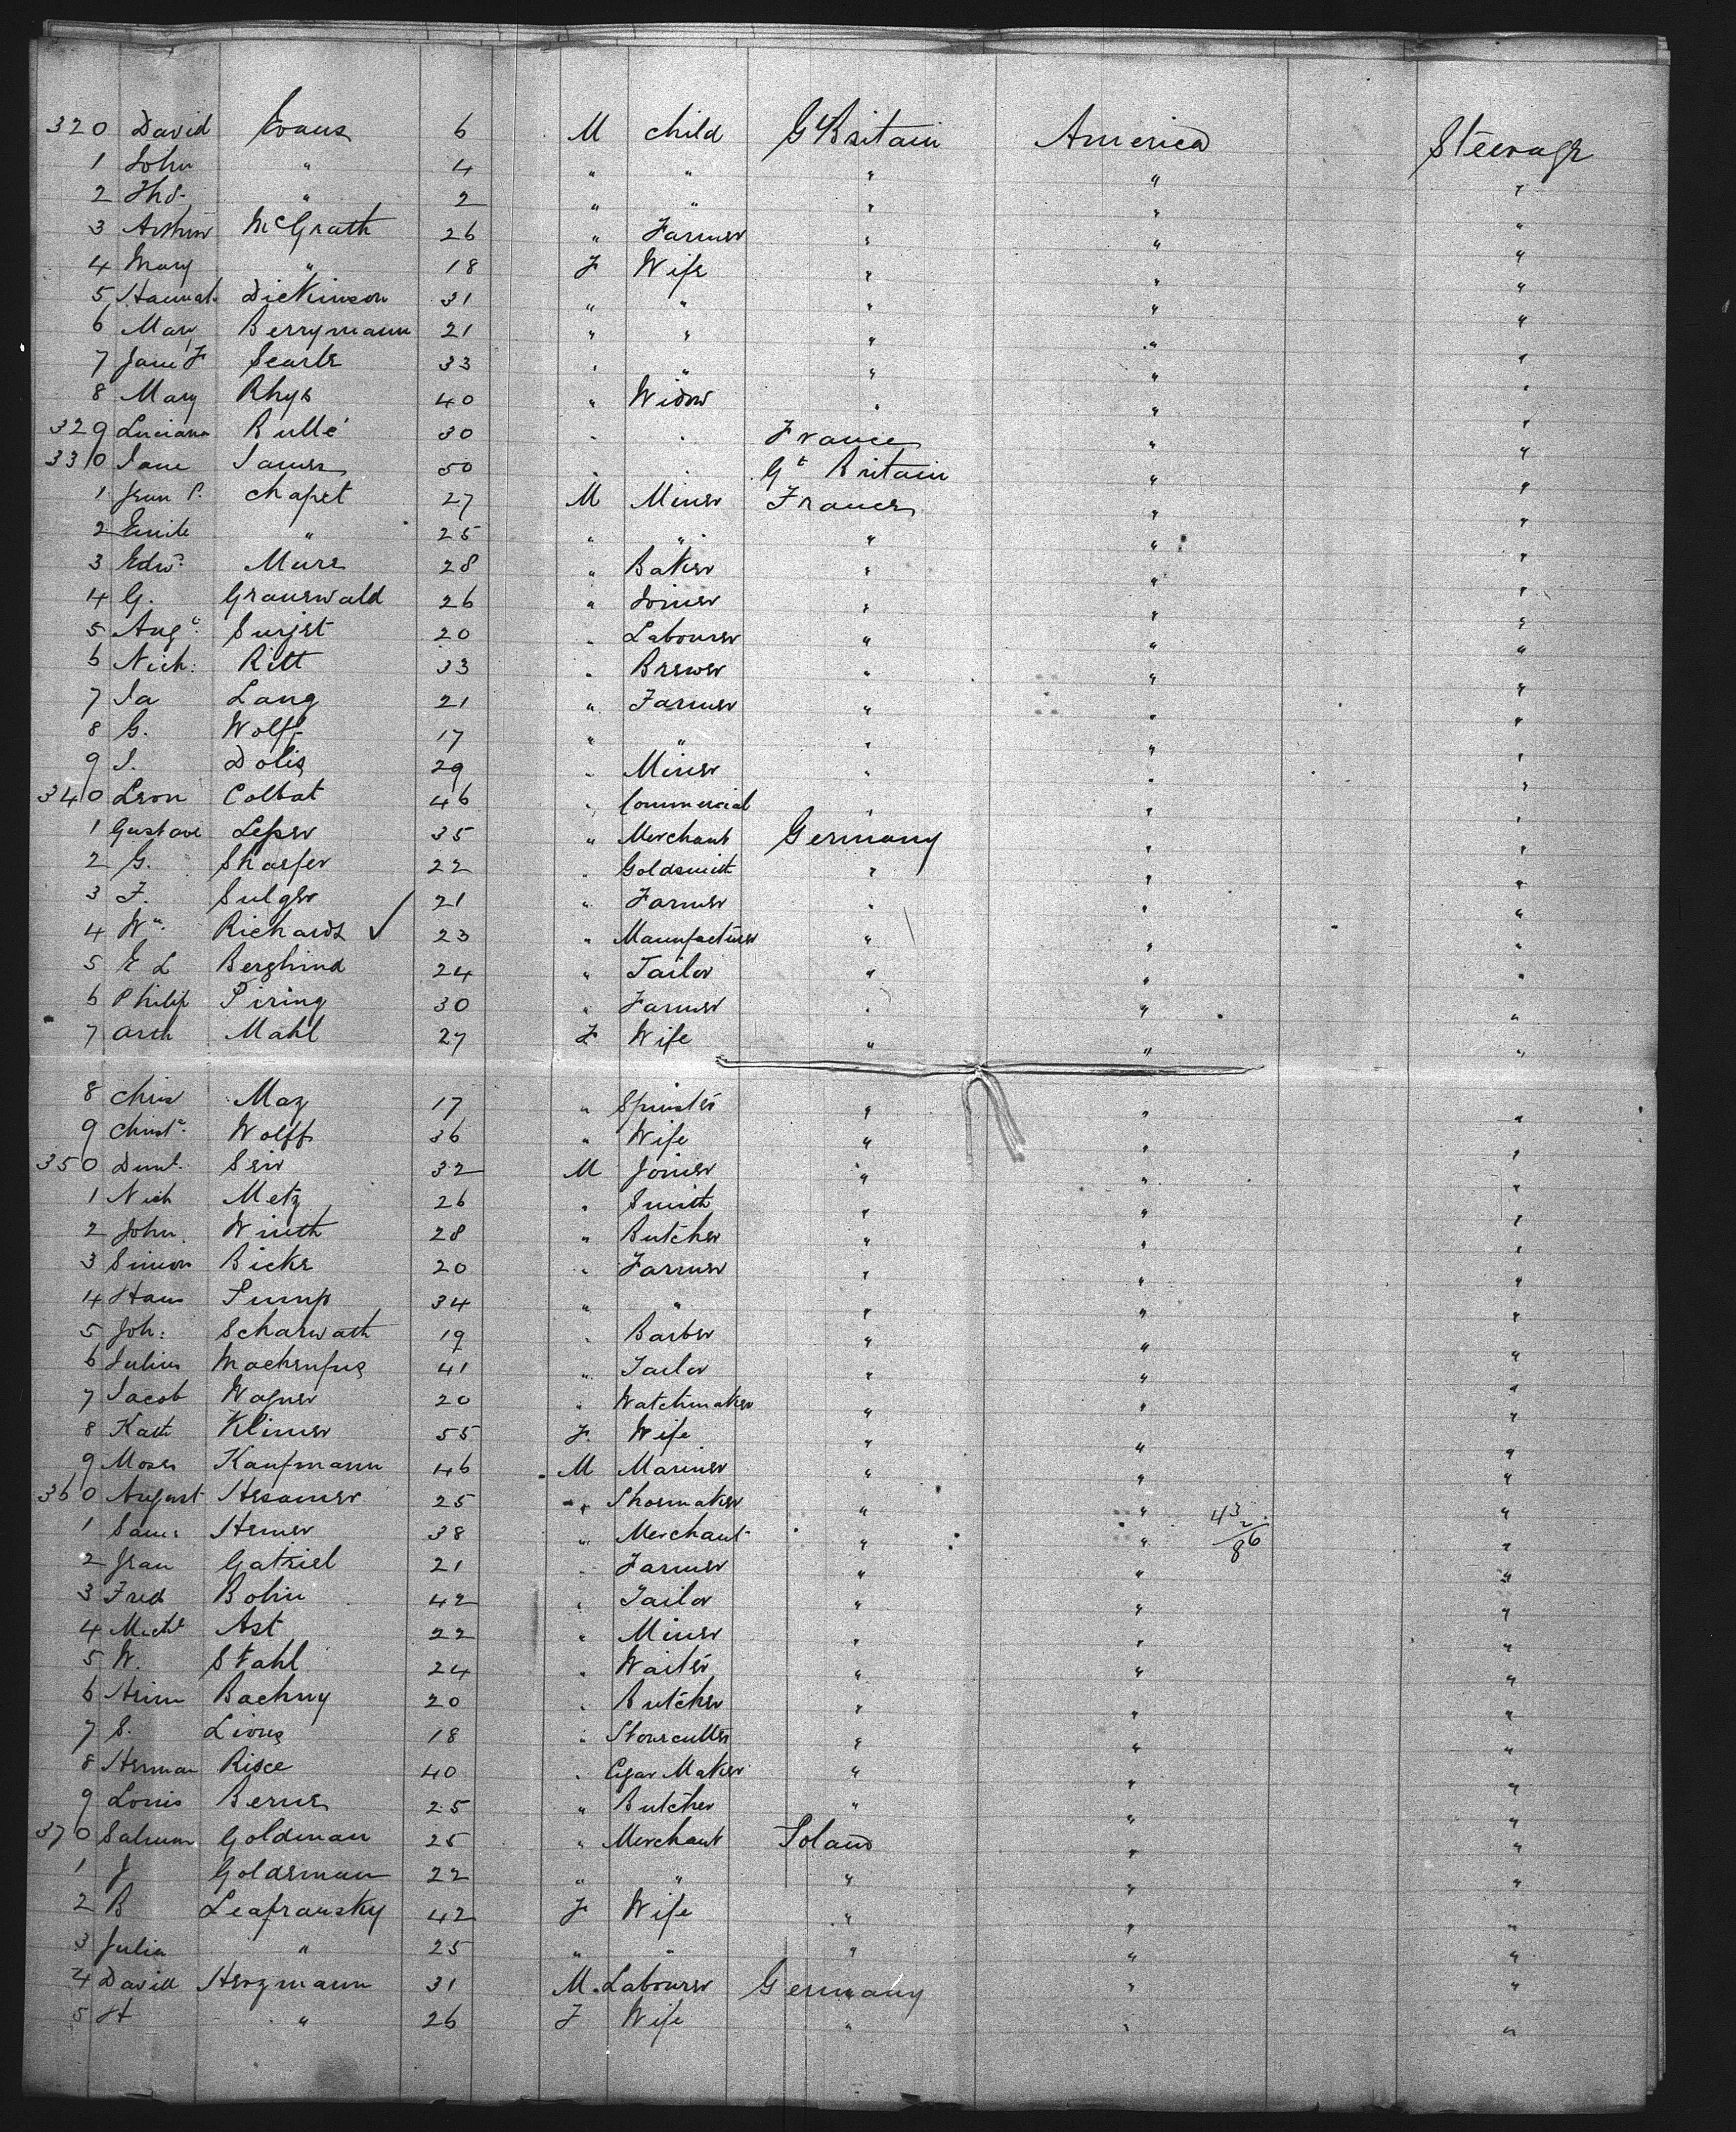 320 David Evans 6 M child Gt Britain America Steerage
1 John " 4 " " " " "
2 Thos. " 2 " " " " "
3 Arthur McGrath 26 " Farmer " " "
4 Mary " 18 F Wife " " "
5 Hannah Dickinson 31 " " " " "
6 Mary Berrymann 21 " " " " "
7 Jane F Searle 33 " " " " "
8 Mary Rhys 40 " Widow " " "
329 Luciana Bullé 30 " " France " "
330 Jane James 50 " " Gt Britain " "
1 Jean P. Chapet 27 M Miner France " "
2 Emile " 25 " " " " "
3 Edwd Mure 28 " Baker " " "
4 G. Grauswald 26 " Joiner " " "
5 Auge. Surjet 20 " Labourer " " "
6 Nich: Ritt 33 " Brewer " " "
7 Ja Lang 21 " Farmer " " "
8 G. Wolff 17 " " " " "
9 J. Dolis 29 " Miner " " "
340 Leon Colbat 46 " Commercial " " "
1 Gustave Leper 35 " Merchant Germany " "
2 G. Sharfer 22 " Goldsmith " " "
3 F. Sulger 21 " Farmer " " "
4 Wm. Richards ✓ 23 " Manufacturer " " "
5 E L Berghind 24 " Tailor " " "
6 Philip Piring 30 " Farmer " " "
7 Arth Mahl 27 F Wife " " "
8 Chris Maz 17 " Spinster " " "
9 Christe. Wolff 36 " Wife " " "
350 Seir 32 M Joiner " " "
1 Nich Metz 26 " Smith " " "
2 John Wirth 28 " Butcher " " "
3 Simon Bicke 20 " Farmer " " "
4 Hans Pump 34 " " " " "
5 Joh: Scharwath 19 " Barber " " "
6 Julius 41 " Tailor " " "
7 Jacob Wagner 20 " Watchmaker " " "
8 Kath Klimer 55 F. Wife " " "
9 Moses Kaufmann 46 M Mariner " " "
360 August Hesamer 25 " Shoemaker " " "
1 Hemer 38 " Merchant " " 43 2 86 "
2 Jean Gatriel 21 " Farmer " " "
3 Fred Bohn 42 " Tailor " " "
4 Michl Ast 22 " Miner " " "
5 W. Stahl 24 " Waiter " " "
6 Heinr Bachny 20 " Butcher " " "
7 S. Lions 18 " Stonecutter " " "
8 Herman Risce 40 " Cigar Maker " " "
9 Louis Berne 25 " Butcher " " "
370 Goldman 25 " Merchant Poland " "
1 J Goldsman 22 " " " " "
2 B Leafransky 42 F Wife " " "
3 Julia " 25 " " " " "
4 David Herzmann 31 M. Labourer Germany " "
5 H " 26 F Wife " " "